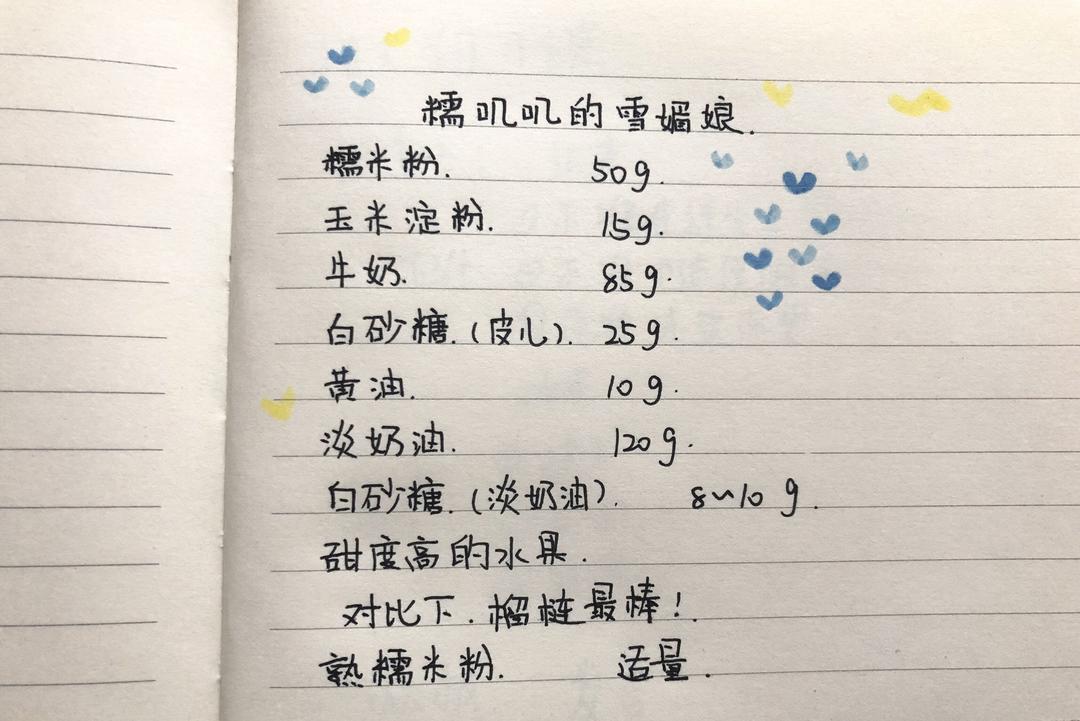 糯叽叽的雪媚娘.
糯米粉. 50g.
玉米淀粉. 15g.
牛奶. 85g.
白砂糖.(皮儿). 25g.
黄油. 10g.
淡奶油. 120g.
白砂糖.(淡奶油). 8~10g.
甜度高的水果.
对比下.榴梿最棒!.
熟糯米粉. 适量.